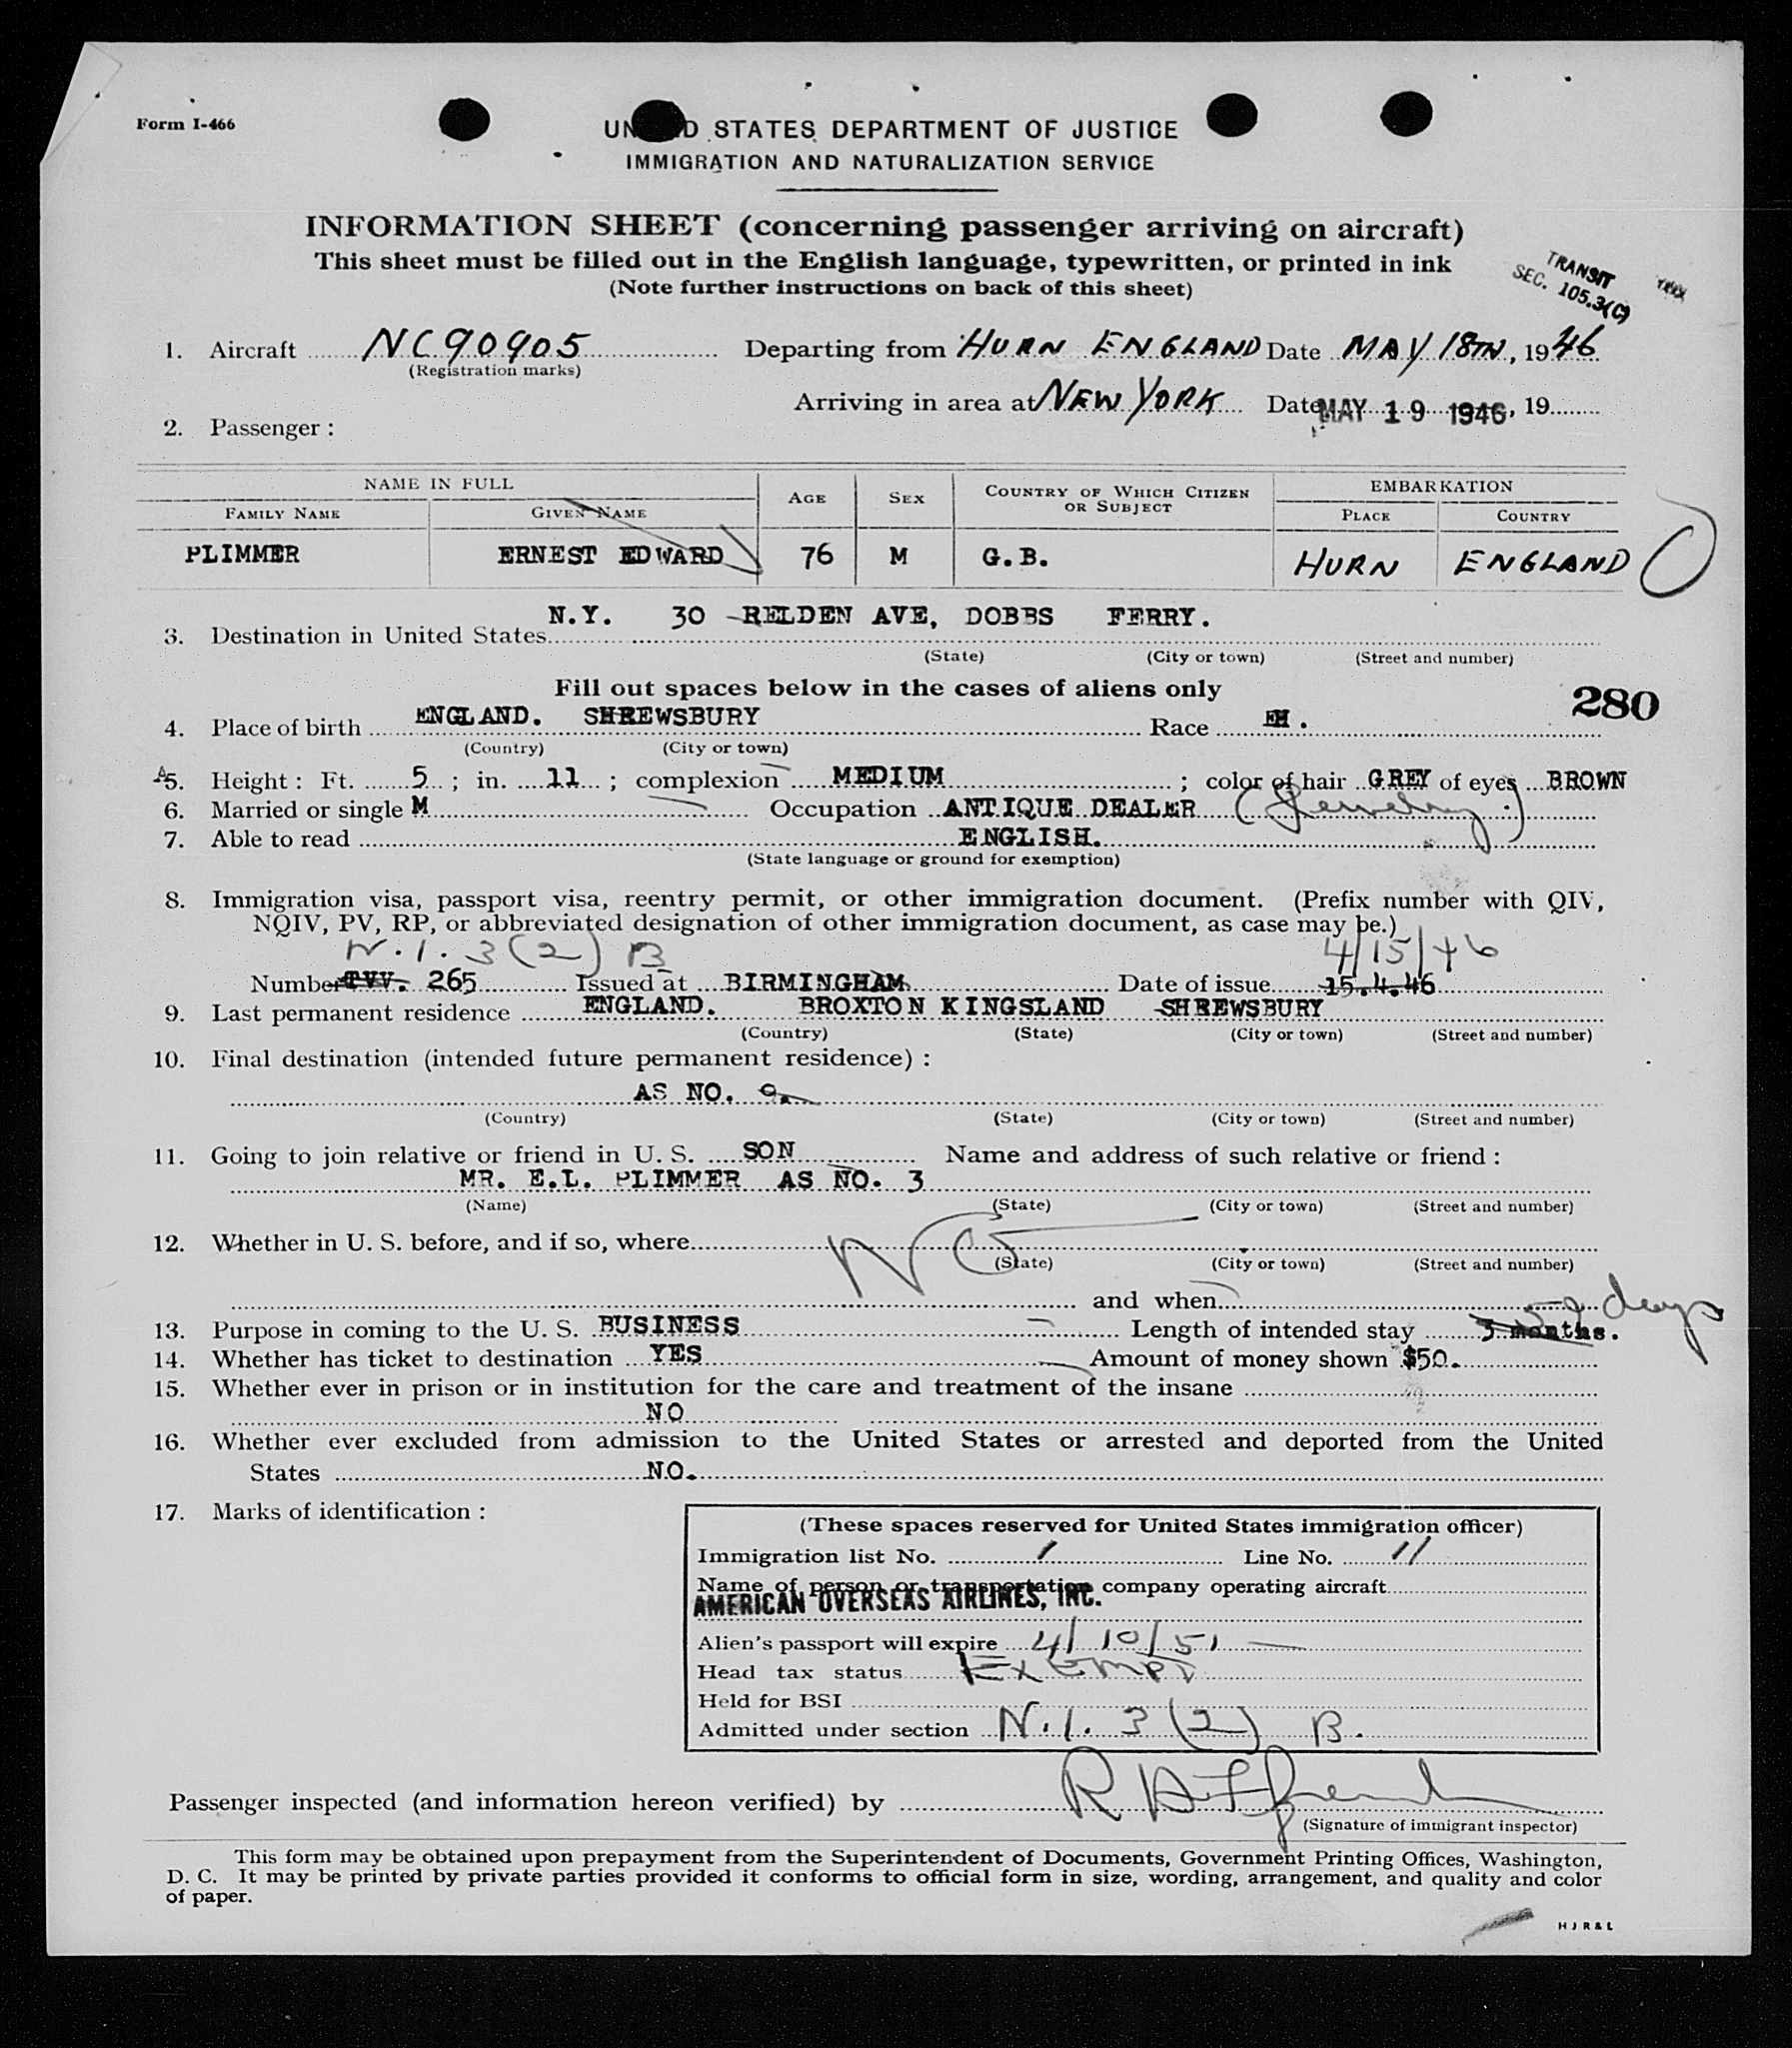 Form I-466
UNITED STATES DEPARTMENT OF JUSTICE
IMMIGRATION AND NATURALIZATION SERVICE
INFORMATION SHEET (concerning passenger arriving on aircraft)
This sheet must be filled out in the English language, typewritten, or printed in ink
(Note further instructions on back of this sheet)
TRANSIT
SEC. 105.3(C)
1. Aircraft NC90905 Departing from HURN ENGLAND Date MAY 18TH, 1946
(Registration marks)
Arriving in area at NEW YORK Date MAY 19 1946, 19
2. Passenger :
NAME IN FULL AGE SEX COUNTRY OF WHICH CITIZEN OR SUBJECT EMBARKATION
FAMILY NAME GIVEN NAME PLACE COUNTRY
PLIMMER ERNEST EDWARD 76 M G.B. HURN ENGLAND
N.Y. 30 RELDEN AVE, DOBBS FERRY.
3. Destination in United States
(State) (City or town) (Street and number)
Fill out spaces below in the cases of aliens only
280
4. Place of birth ENGLAND. SHREWSBURY Race EH.
(Country) (City or town)
5. Height : Ft. 5 ; in. 11 ; complexion MEDIUM ; color of hair GREY of eyes BROWN
6. Married or single M Occupation ANTIQUE DEALER (Jewelry)
7. Able to read ENGLISH.
(State language or ground for exemption)
8. Immigration visa, passport visa, reentry permit, or other immigration document. (Prefix number with QIV,
NQIV, PV, RP, or abbreviated designation of other immigration document, as case may be.)
N.I. 3(2) B 4/15/46
Number TVV. 265 Issued at BIRMINGHAM Date of issue 15.4.46
9. Last permanent residence ENGLAND. BROXTON KINGSLAND SHREWSBURY
(Country) (State) (City or town) (Street and number)
10. Final destination (intended future permanent residence) :
AS NO. 9.
(Country) (State) (City or town) (Street and number)
11. Going to join relative or friend in U. S. SON Name and address of such relative or friend :
MR. E.L. PLIMMER AS NO. 3
(Name) (State) (City or town) (Street and number)
12. Whether in U. S. before, and if so, where NO
(State) (City or town) (Street and number)
and when
59 days
13. Purpose in coming to the U. S. BUSINESS Length of intended stay 3 months.
14. Whether has ticket to destination YES Amount of money shown $50.
15. Whether ever in prison or in institution for the care and treatment of the insane
NO
16. Whether ever excluded from admission to the United States or arrested and deported from the United
States NO.
17. Marks of identification :
(These spaces reserved for United States immigration officer)
Immigration list No. 1 Line No. 11
Name of person or transportation company operating aircraft
AMERICAN OVERSEAS AIRLINES, INC.
Alien's passport will expire 4/10/51
Head tax status Exempt
Held for BSI
Admitted under section N.I. 3(2) B.
Passenger inspected (and information hereon verified) by
(Signature of immigrant inspector)
This form may be obtained upon prepayment from the Superintendent of Documents, Government Printing Offices, Washington,
D. C. It may be printed by private parties provided it conforms to official form in size, wording, arrangement, and quality and color
of paper.
H J R & L